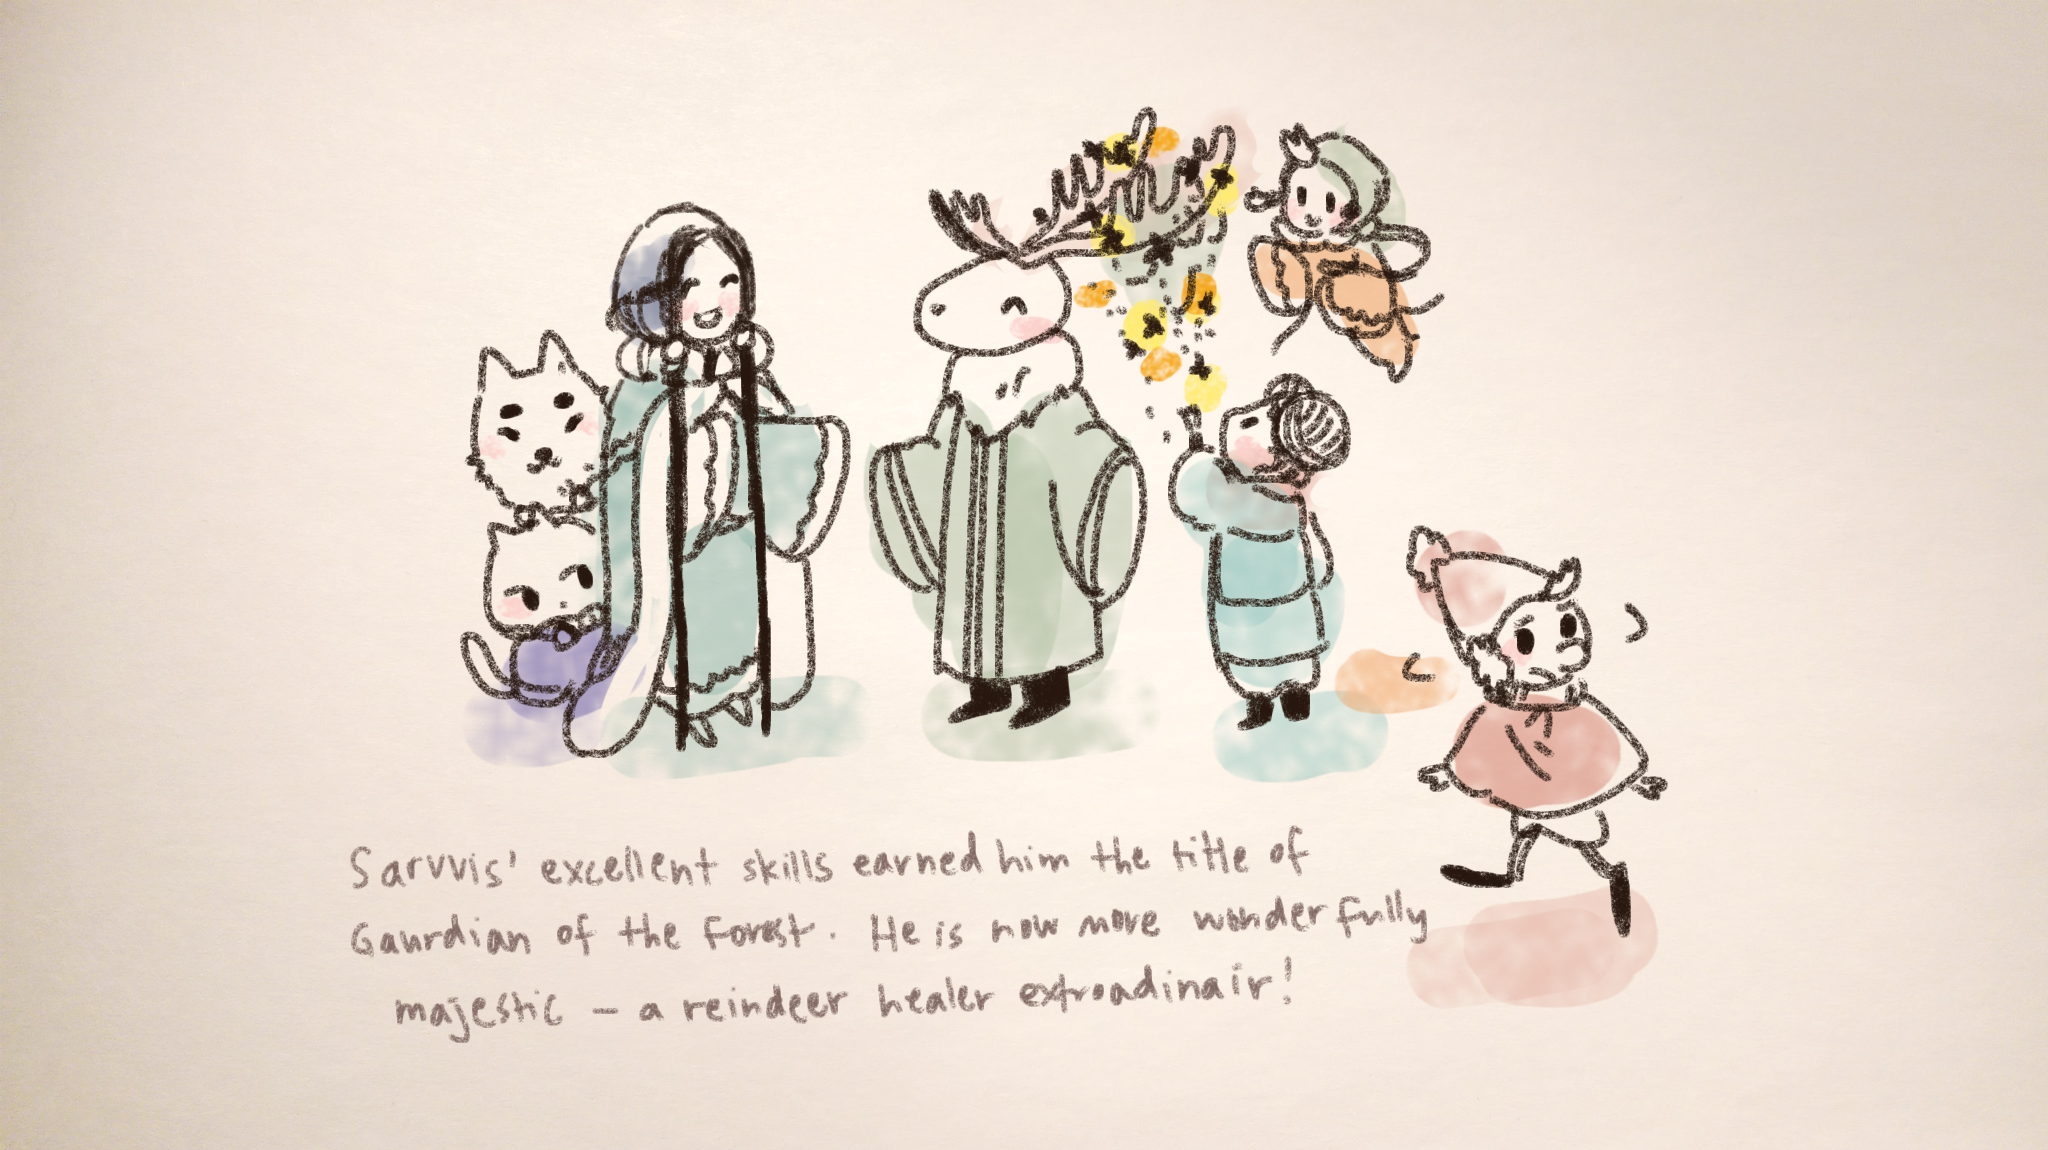 Sarvvis' excellent skills earned him the title of
Gaurdian of the Forest. He is now more wonderfully
majestic – a reindeer healer extroadinair!